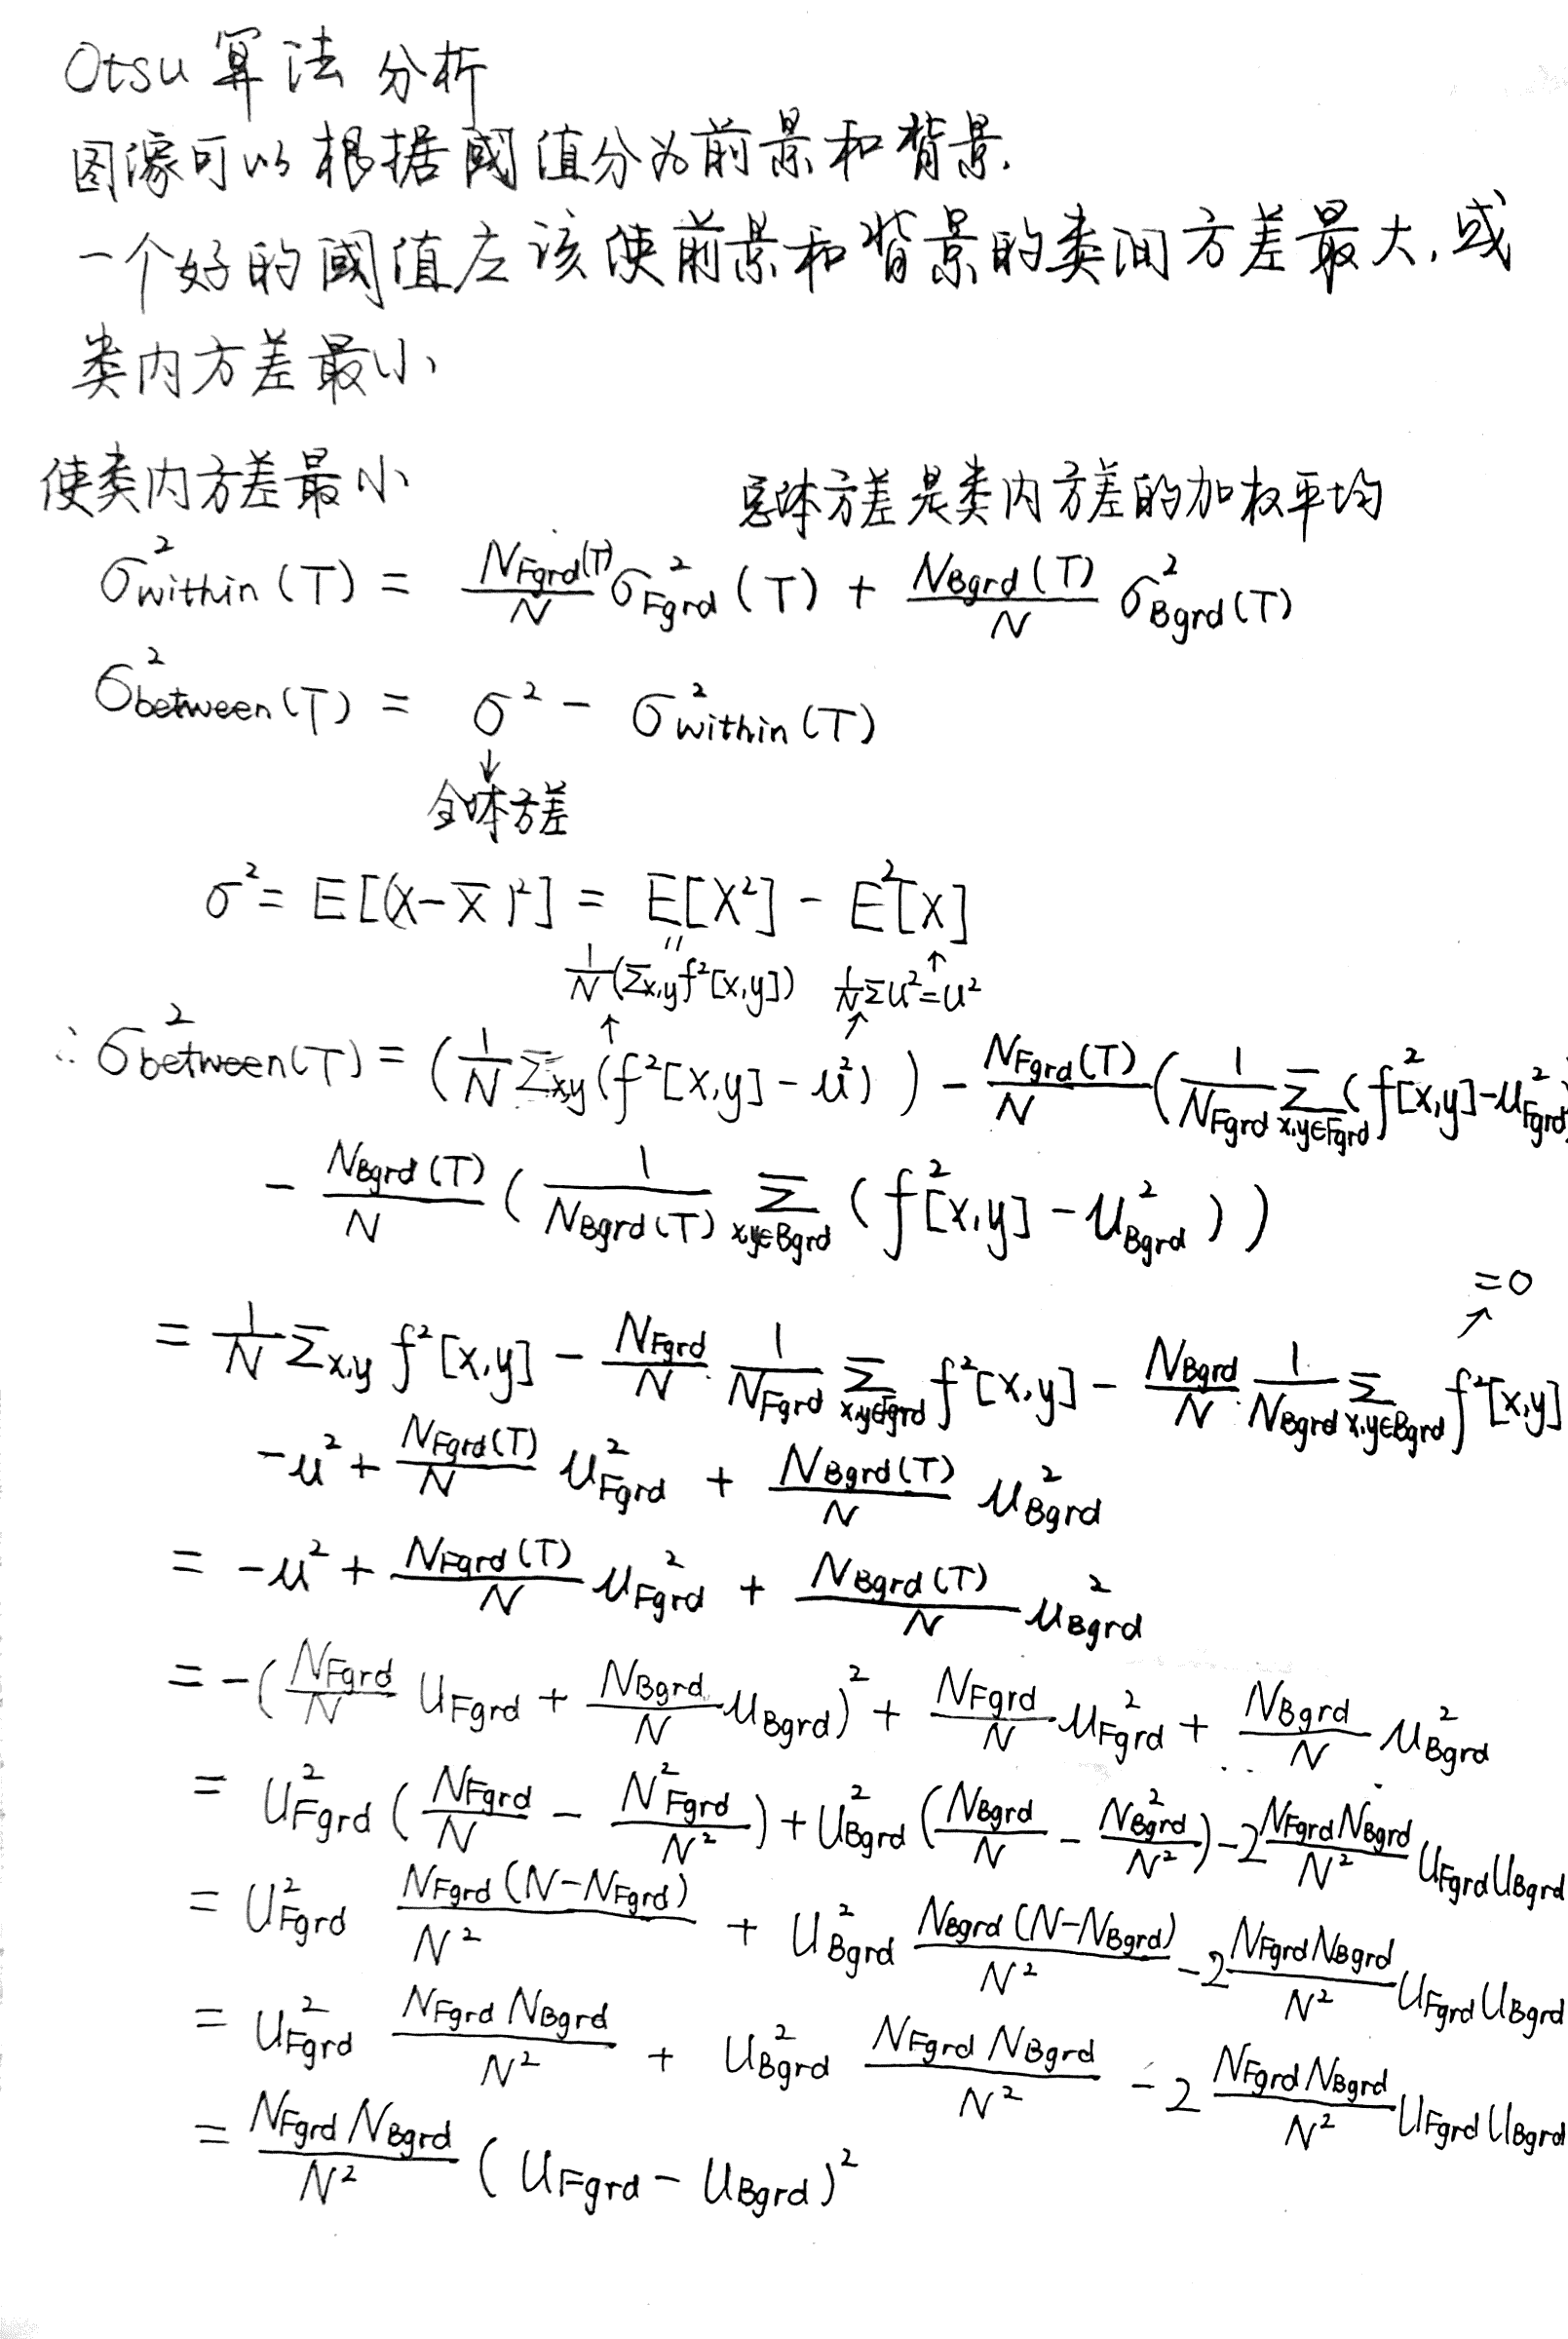 Otsu 算法 分析
图像可以根据阈值分为前景和背景.
一个好的阈值应该使前景和背景的类间方差最大,或
类内方差最小、
使类内方差最小、
总体方差是类内方差的加权平均
σ²within(T) = NFgrd(T)/N σ²Fgrd(T) + NBgrd(T)/N σ²Bgrd(T)
σ²between(T) = σ² - σ²within(T)
↓
全体方差
σ² = E[(X-X̄)²] = E[X²] - E²[X]
〃 ↑
1/N(Σx,y f²[x,y]) 1/N Σu²=u²
↑ ↑
∴ σ²between(T) = (1/N Σx,y(f²[x,y]-u²)) - NFgrd(T)/N (1/NFgrd Σx,y∈Fgrd (f²[x,y]-u²Fgrd)
- NBgrd(T)/N (1/NBgrd(T) Σx,y∈Bgrd (f²[x,y]-u²Bgrd))
=0
↗
= 1/N Σx,y f²[x,y] - NFgrd/N · 1/NFgrd Σx,y∈Fgrd f²[x,y] - NBgrd/N · 1/NBgrd Σx,y∈Bgrd f²[x,y]
-u² + NFgrd(T)/N u²Fgrd + NBgrd(T)/N u²Bgrd
= -u² + NFgrd(T)/N u²Fgrd + NBgrd(T)/N u²Bgrd
= -(NFgrd/N uFgrd + NBgrd/N uBgrd)² + NFgrd/N u²Fgrd + NBgrd/N u²Bgrd
= u²Fgrd (NFgrd/N - N²Fgrd/N²) + u²Bgrd (NBgrd/N - NBgrd²/N²) - 2 NFgrdNBgrd/N² uFgrd uBgrd
= u²Fgrd NFgrd(N-NFgrd)/N² + u²Bgrd NBgrd(N-NBgrd)/N² - 2 NFgrdNBgrd/N² uFgrd uBgrd
= u²Fgrd NFgrd NBgrd/N² + u²Bgrd NFgrd NBgrd/N² - 2 NFgrdNBgrd/N² uFgrd uBgrd
= NFgrd NBgrd/N² (uFgrd - uBgrd)²